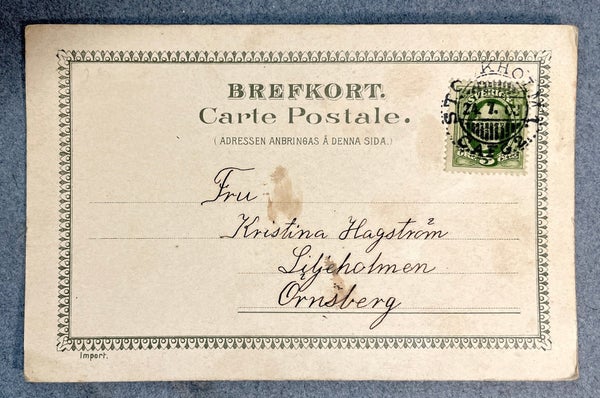 BREFKORT.
Carte Postale.
(ADRESSEN ANBRINGAS Å DENNA SIDA.)
STOCKHOLM 1
Fru
Kristina Hagström
Liljeholmen
Ornsberg
Import.